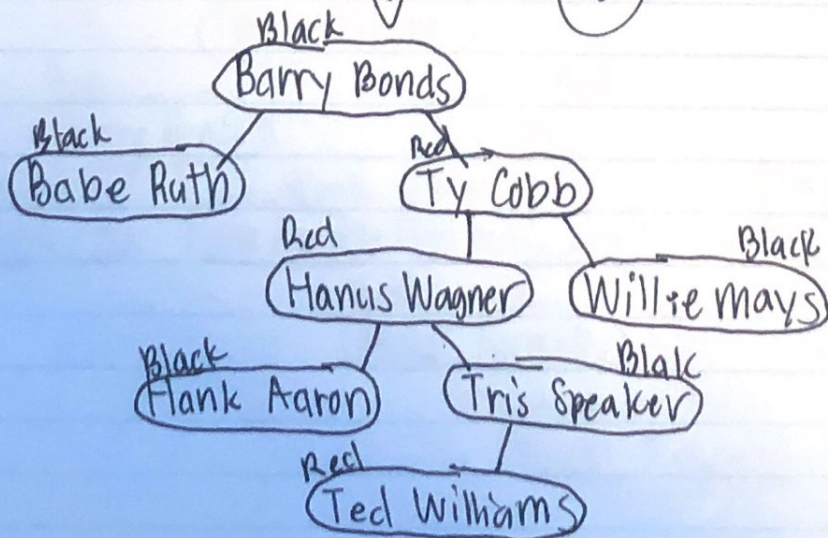 Black
Barry Bonds
Black
Babe Ruth
Red
Ty Cobb
Red
Hanus Wagner
Black
Willie Mays
Black
Hank Aaron
Blak
Tris Speaker
Red
Ted Williams